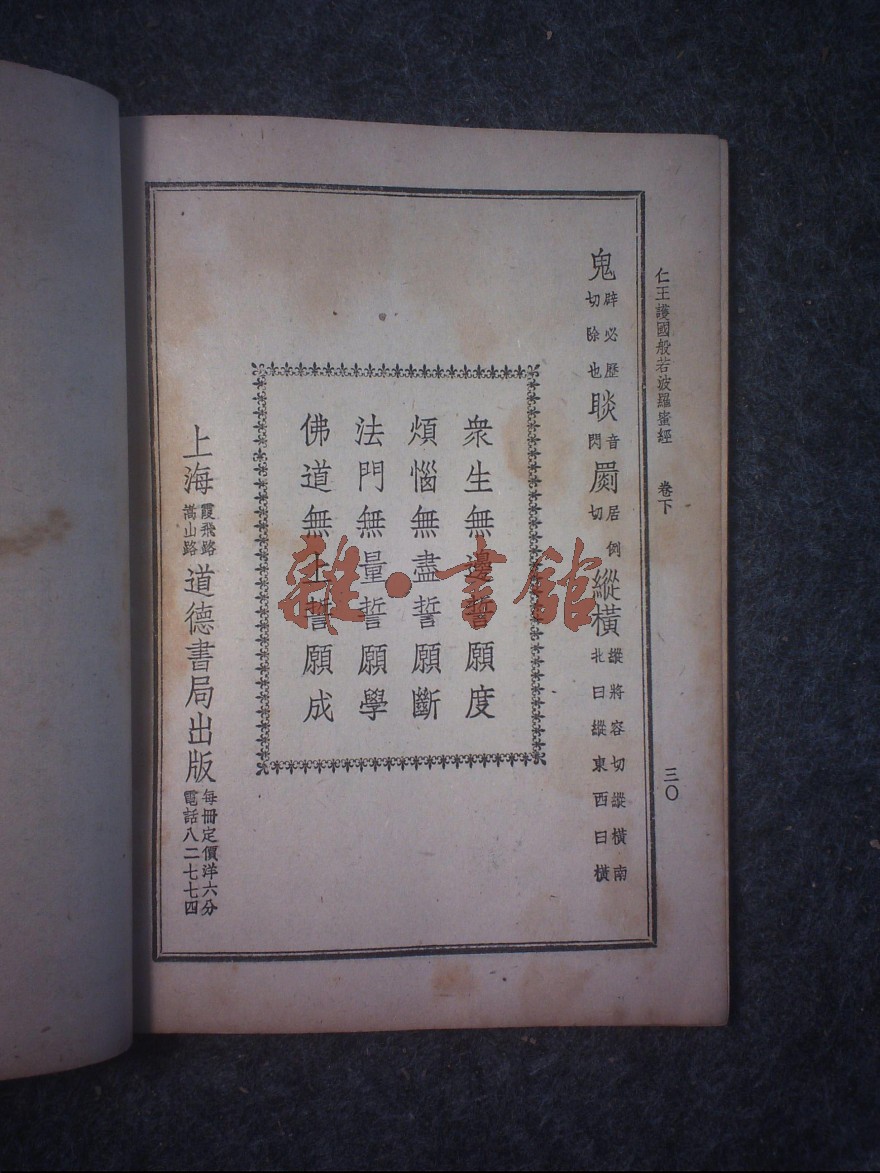 仁王護國般若波羅蜜經 卷下 三〇
鬼 辟必歷切除也 睒 音閃 罽 居例切 縱橫 縱將容切縱橫南北曰縱東西曰橫
衆生無邊誓願度
煩惱無盡誓願斷
法門無量誓願學
佛道無上誓願成
上海 霞飛路嵩山路 道德書局出版 每冊定價洋六分電話八二七七四
雜·書館